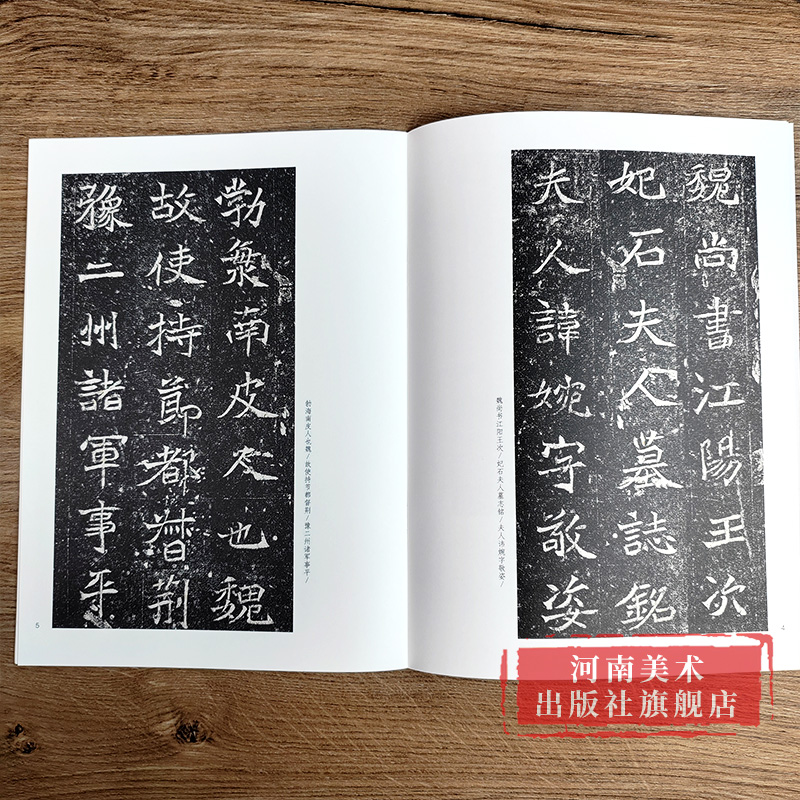 魏尚書江陽王次
妃石夫人墓誌銘
夫人諱婉字敬姿
魏尚书江阳王次/妃石夫人墓志铭/夫人讳婉字敬姿/
4
勃海南皮人也魏
故使持節都督荆
豫二州諸軍事平
勃海南皮人也魏/故使持节都督荆/豫二州诸军事平/
5
河南美术
出版社旗舰店